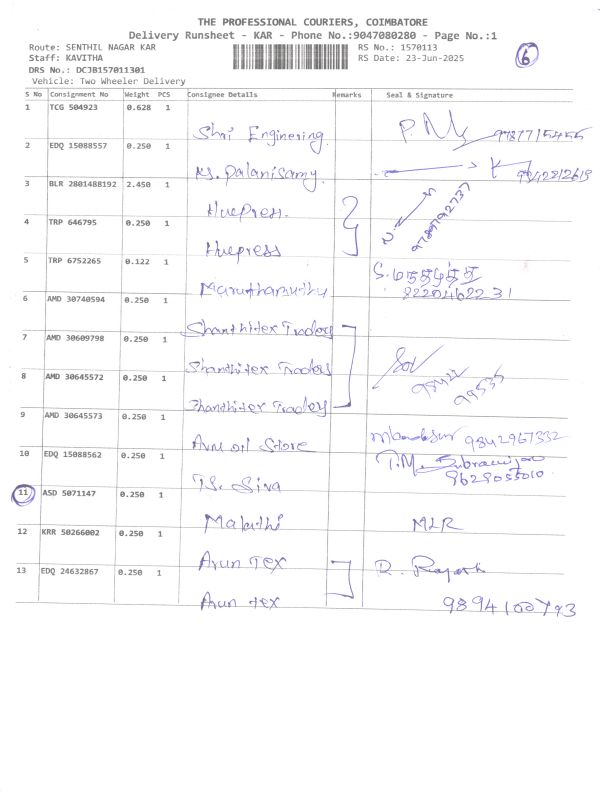 THE PROFESSIONAL COURIERS, COIMBATORE
Delivery Runsheet - KAR - Phone No.:9047080280 - Page No.:1
Route: SENTHIL NAGAR KAR RS No.: 1570113 6
Staff: KAVITHA RS Date: 23-Jun-2025
DRS No.: DCJB157011301
Vehicle: Two Wheeler Delivery
S No Consignment No Weight PCS Consignee Details Remarks Seal & Signature
1 TCG 504923 0.628 1
Shri Enginering
2 EDQ 15088557 0.250 1
Palanisamy
3 BLR 2801488192 2.450 1
Huepress 9789792737
4 TRP 646795 0.250 1
Huepress
5 TRP 6752265 0.122 1
Maruthamuthu 8220462231
6 AMD 30740594 0.250 1
Shanthitex Traders
7 AMD 30609798 0.250 1
Shanthitex Traders
8 AMD 30645572 0.250 1
Shanthitex Traders
9 AMD 30645573 0.250 1
Oil Store 9842967332
10 EDQ 15088562 0.250 1 T.M. 9629055010
T.S. Siva
11 ASD 5071147 0.250 1
Malathi MLR
12 KRR 50266002 0.250 1
Arun Tex
13 EDQ 24632867 0.250 1 R.
Arun Tex